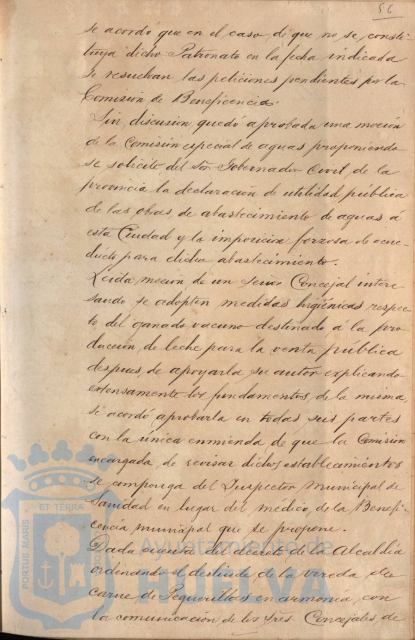 56
se acordó que en el caso de que no se consti-
tuya dicho Patronato en la fecha indicada
se resuelvan las peticiones pendientes por la
Comisión de Beneficencia.
Sin discusión quedó aprobada una moción
de la Comisión especial de aguas proponiendo
se solicite del Sor Gobernador Civil de la
provincia la declaración de utilidad pública
de las obras de abastecimiento de aguas á
esta Ciudad y la imposición forzosa de acue-
ducto para dicho abastecimiento.
Leida moción de un Señor Concejal intere-
sando se adopten medidas higiénicas respec-
to del ganado vacuno destinado á la pro-
ducción de leche para la venta pública
despues de apoyarla su autor explicando
extensamente los fundamentos de la misma,
se acordó aprobarla en todas sus partes
con la única enmienda de que la Comisión
encargada de revisar dichos establecimientos
se componga del Inspector Municipal de
Sanidad en lugar del médico de la Benefi-
cencia municipal que se propone.
Dada cuenta del decreto de la Alcaldia
ordenando el deslinde de la vereda de
Carne de Peguerillas en armonia con
la comunicación de los Sres. Concejales de
PORTUS MARIS ET TERRÆ
Ayuntamiento de